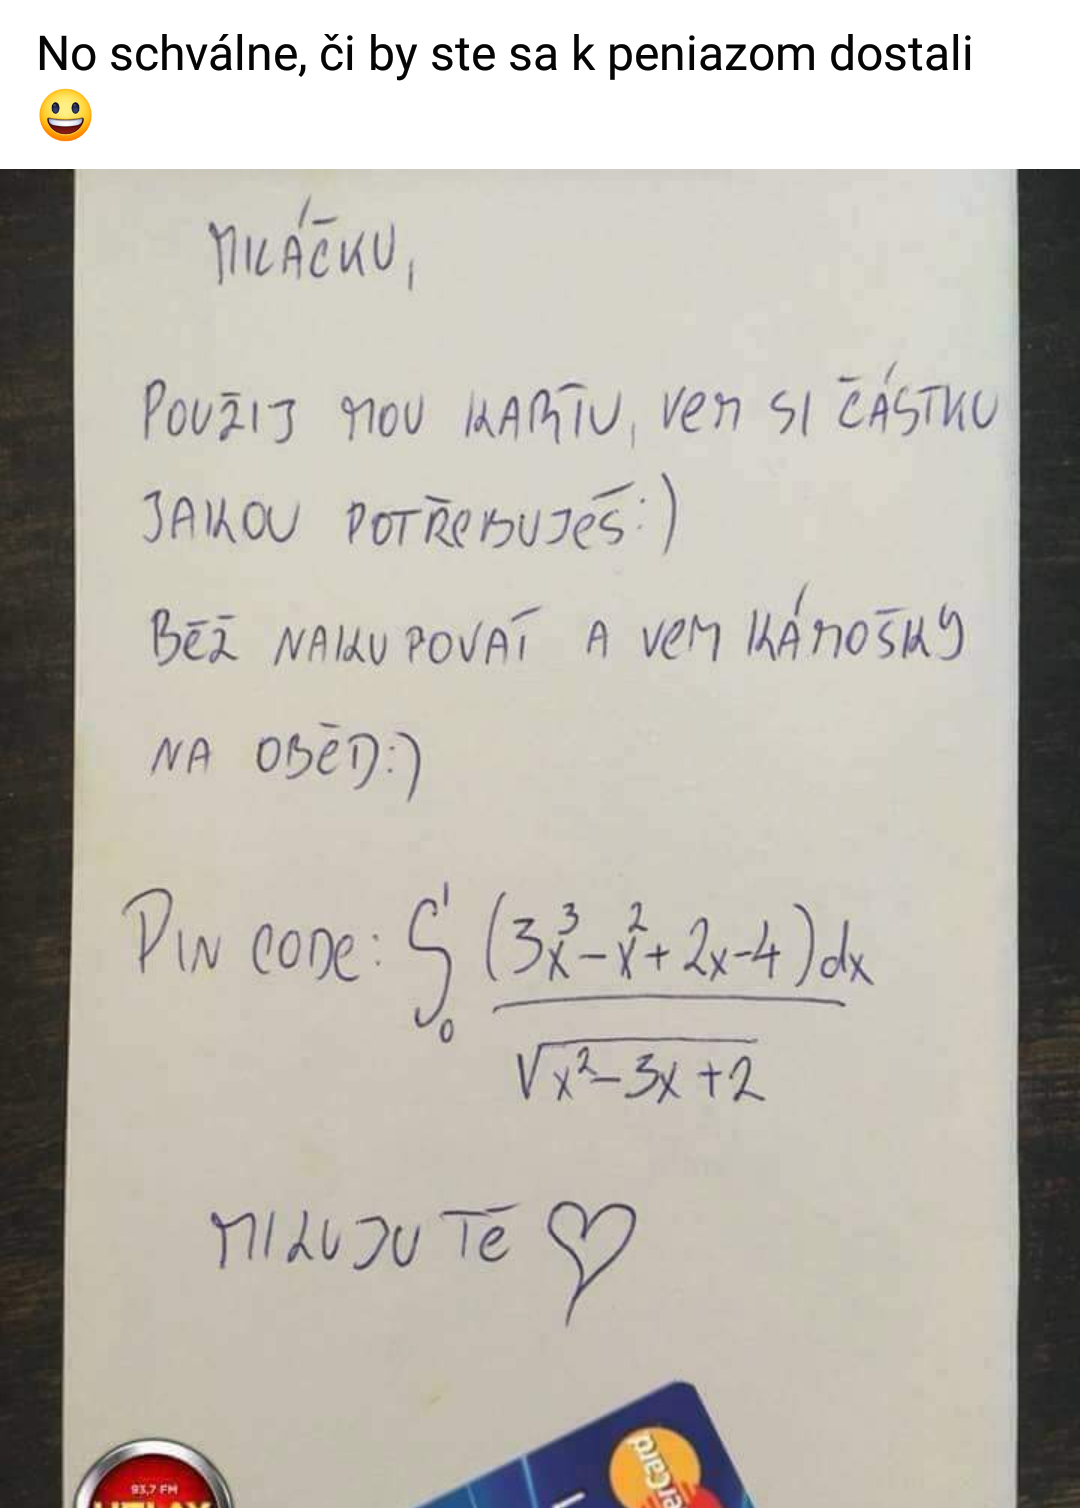 No schválne, či by ste sa k peniazom dostali
😃
MILÁČKU,
POUŽIJ MOU KARTU, VEM SI ČÁSTKU
JAKOU POTŘEBUJEŠ:)
BĚŽ NAKUPOVAT A VEM KÁMOŠKY
NA OBĚD:)
PIN CODE: ∫₀¹ (3x³-x²+2x-4)dx
√x²-3x+2
MILUJU TĚ ♡
93,7 FM